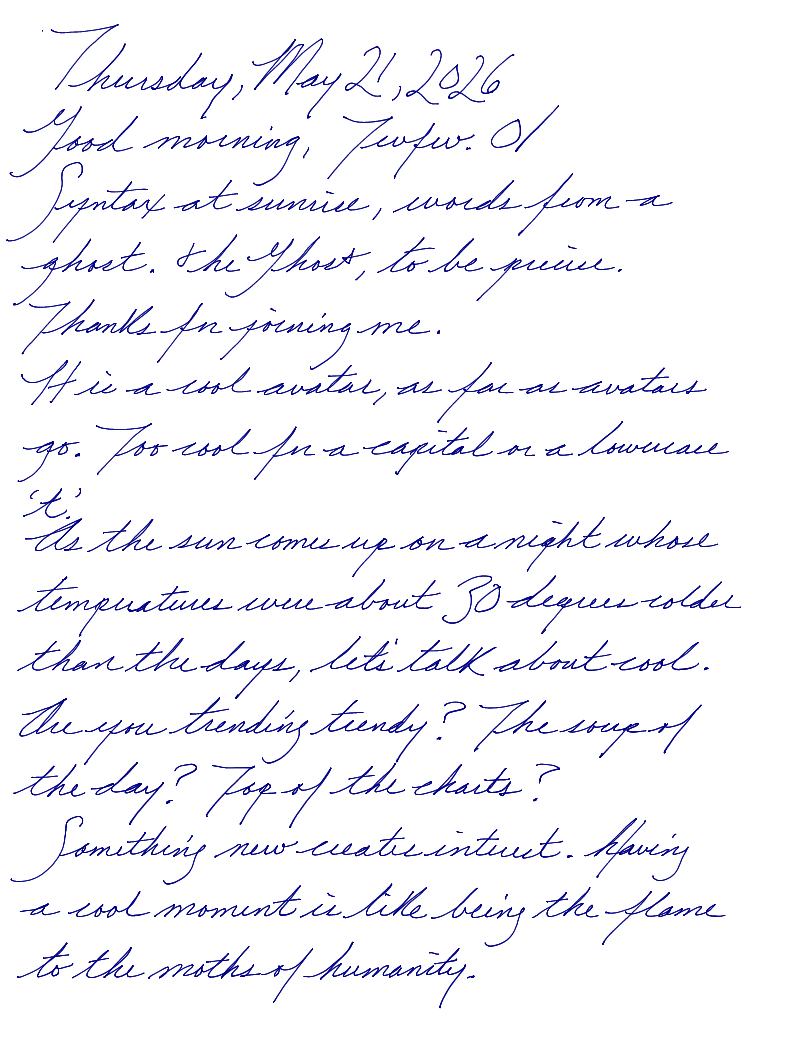 Thursday, May 21, 2026
Good morning, Twfw. 01
Syntax at sunrise, words from a
ghost. The Ghost, to be precise.
Thanks for joining me.
It is a cool avatar, as far as avatars
go. Too cool for a capital or a lowercase
't'.
As the sun comes up on a night whose
temperatures were about 30 degrees colder
than the days, let's talk about cool.
Are you trending trendy? The soup of
the day? Top of the charts?
Something new creates interest. Having
a cool moment is like being the flame
to the moths of humanity.